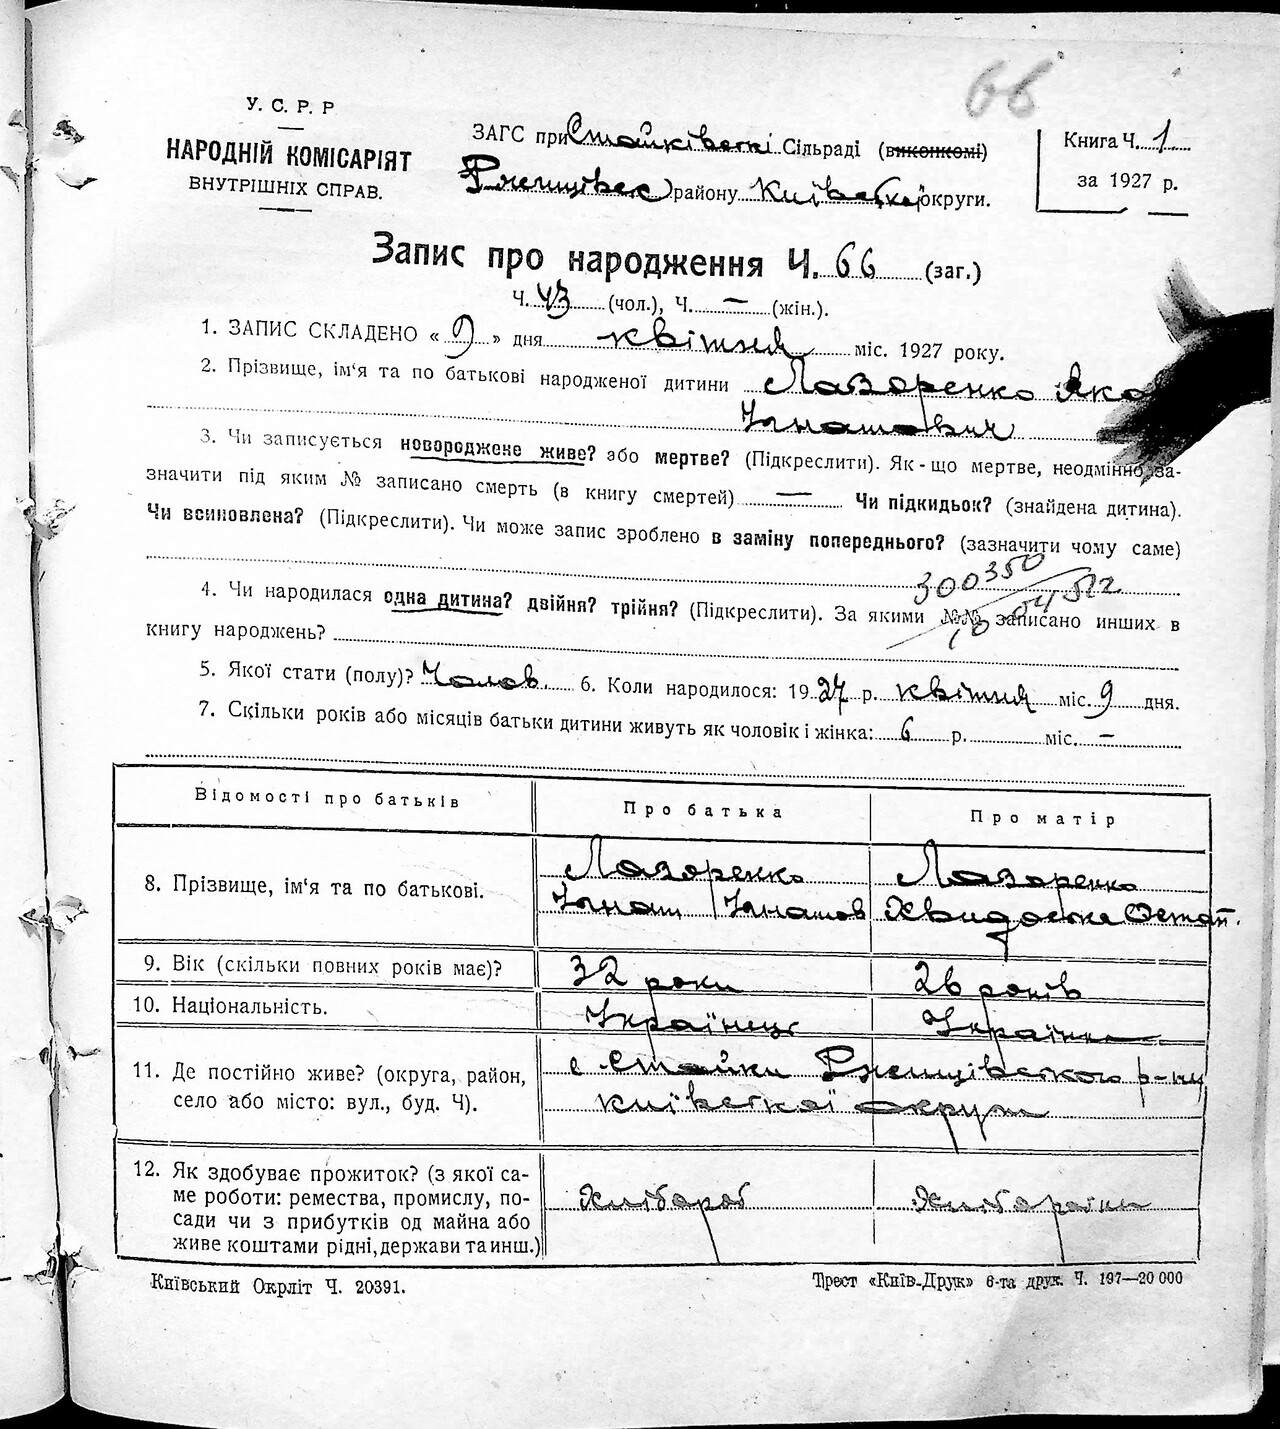 66
У. С. Р. Р
НАРОДНІЙ КОМІСАРІЯТ
ВНУТРІШНІХ СПРАВ.
ЗАГС при Стайківські Сільраді (виконкомі)
Ржищівськ району Київської округи.
Книга Ч. 1
за 1927 р.
Запис про народження Ч. 66 (заг.)
Ч. 43 (чол.), Ч. — (жін.).
1. ЗАПИС СКЛАДЕНО « 9 » дня квітня міс. 1927 року.
2. Прізвище, ім'я та по батькові народженої дитини Лазоренко Яко
Ігнатович
3. Чи записується новороджене живе? або мертве? (Підкреслити). Як-що мертве, неодмінно за-
значити під яким № записано смерть (в книгу смертей) — Чи підкидьок? (знайдена дитина).
Чи всиновлена? (Підкреслити). Чи може запис зроблено в заміну попереднього? (зазначити чому саме)
300350
4. Чи народилася одна дитина? двійня? трійня? (Підкреслити). За якими №№ записано инших в
книгу народжень?
5. Якої стати (полу)? Чолов. 6. Коли народилося: 1927 р. квітня міс. 9 дня.
7. Скільки років або місяців батьки дитини живуть як чоловік і жінка: 6 р. міс. —
Відомості про батьків Про батька Про матір
8. Прізвище, ім'я та по батькові. Лазоренко Лазоренко
Ігнат Ігнатов Хвидоська Остап.
9. Вік (скільки повних років має)? 32 роки 26 років
10. Національність. Українець Українка
11. Де постійно живе? (округа, район,
село або місто: вул., буд. Ч).
с Стайки Ржищівського р-ну
Київської округи
12. Як здобуває прожиток? (з якої са-
ме роботи: ремества, промислу, по-
сади чи з прибутків од майна або
живе коштами рідні, держави та инш.)
Хлібороб Хліборобка
Київський Окрліт Ч. 20391.
Трест «Київ-Друк» 6-та друк. Ч. 197—20 000